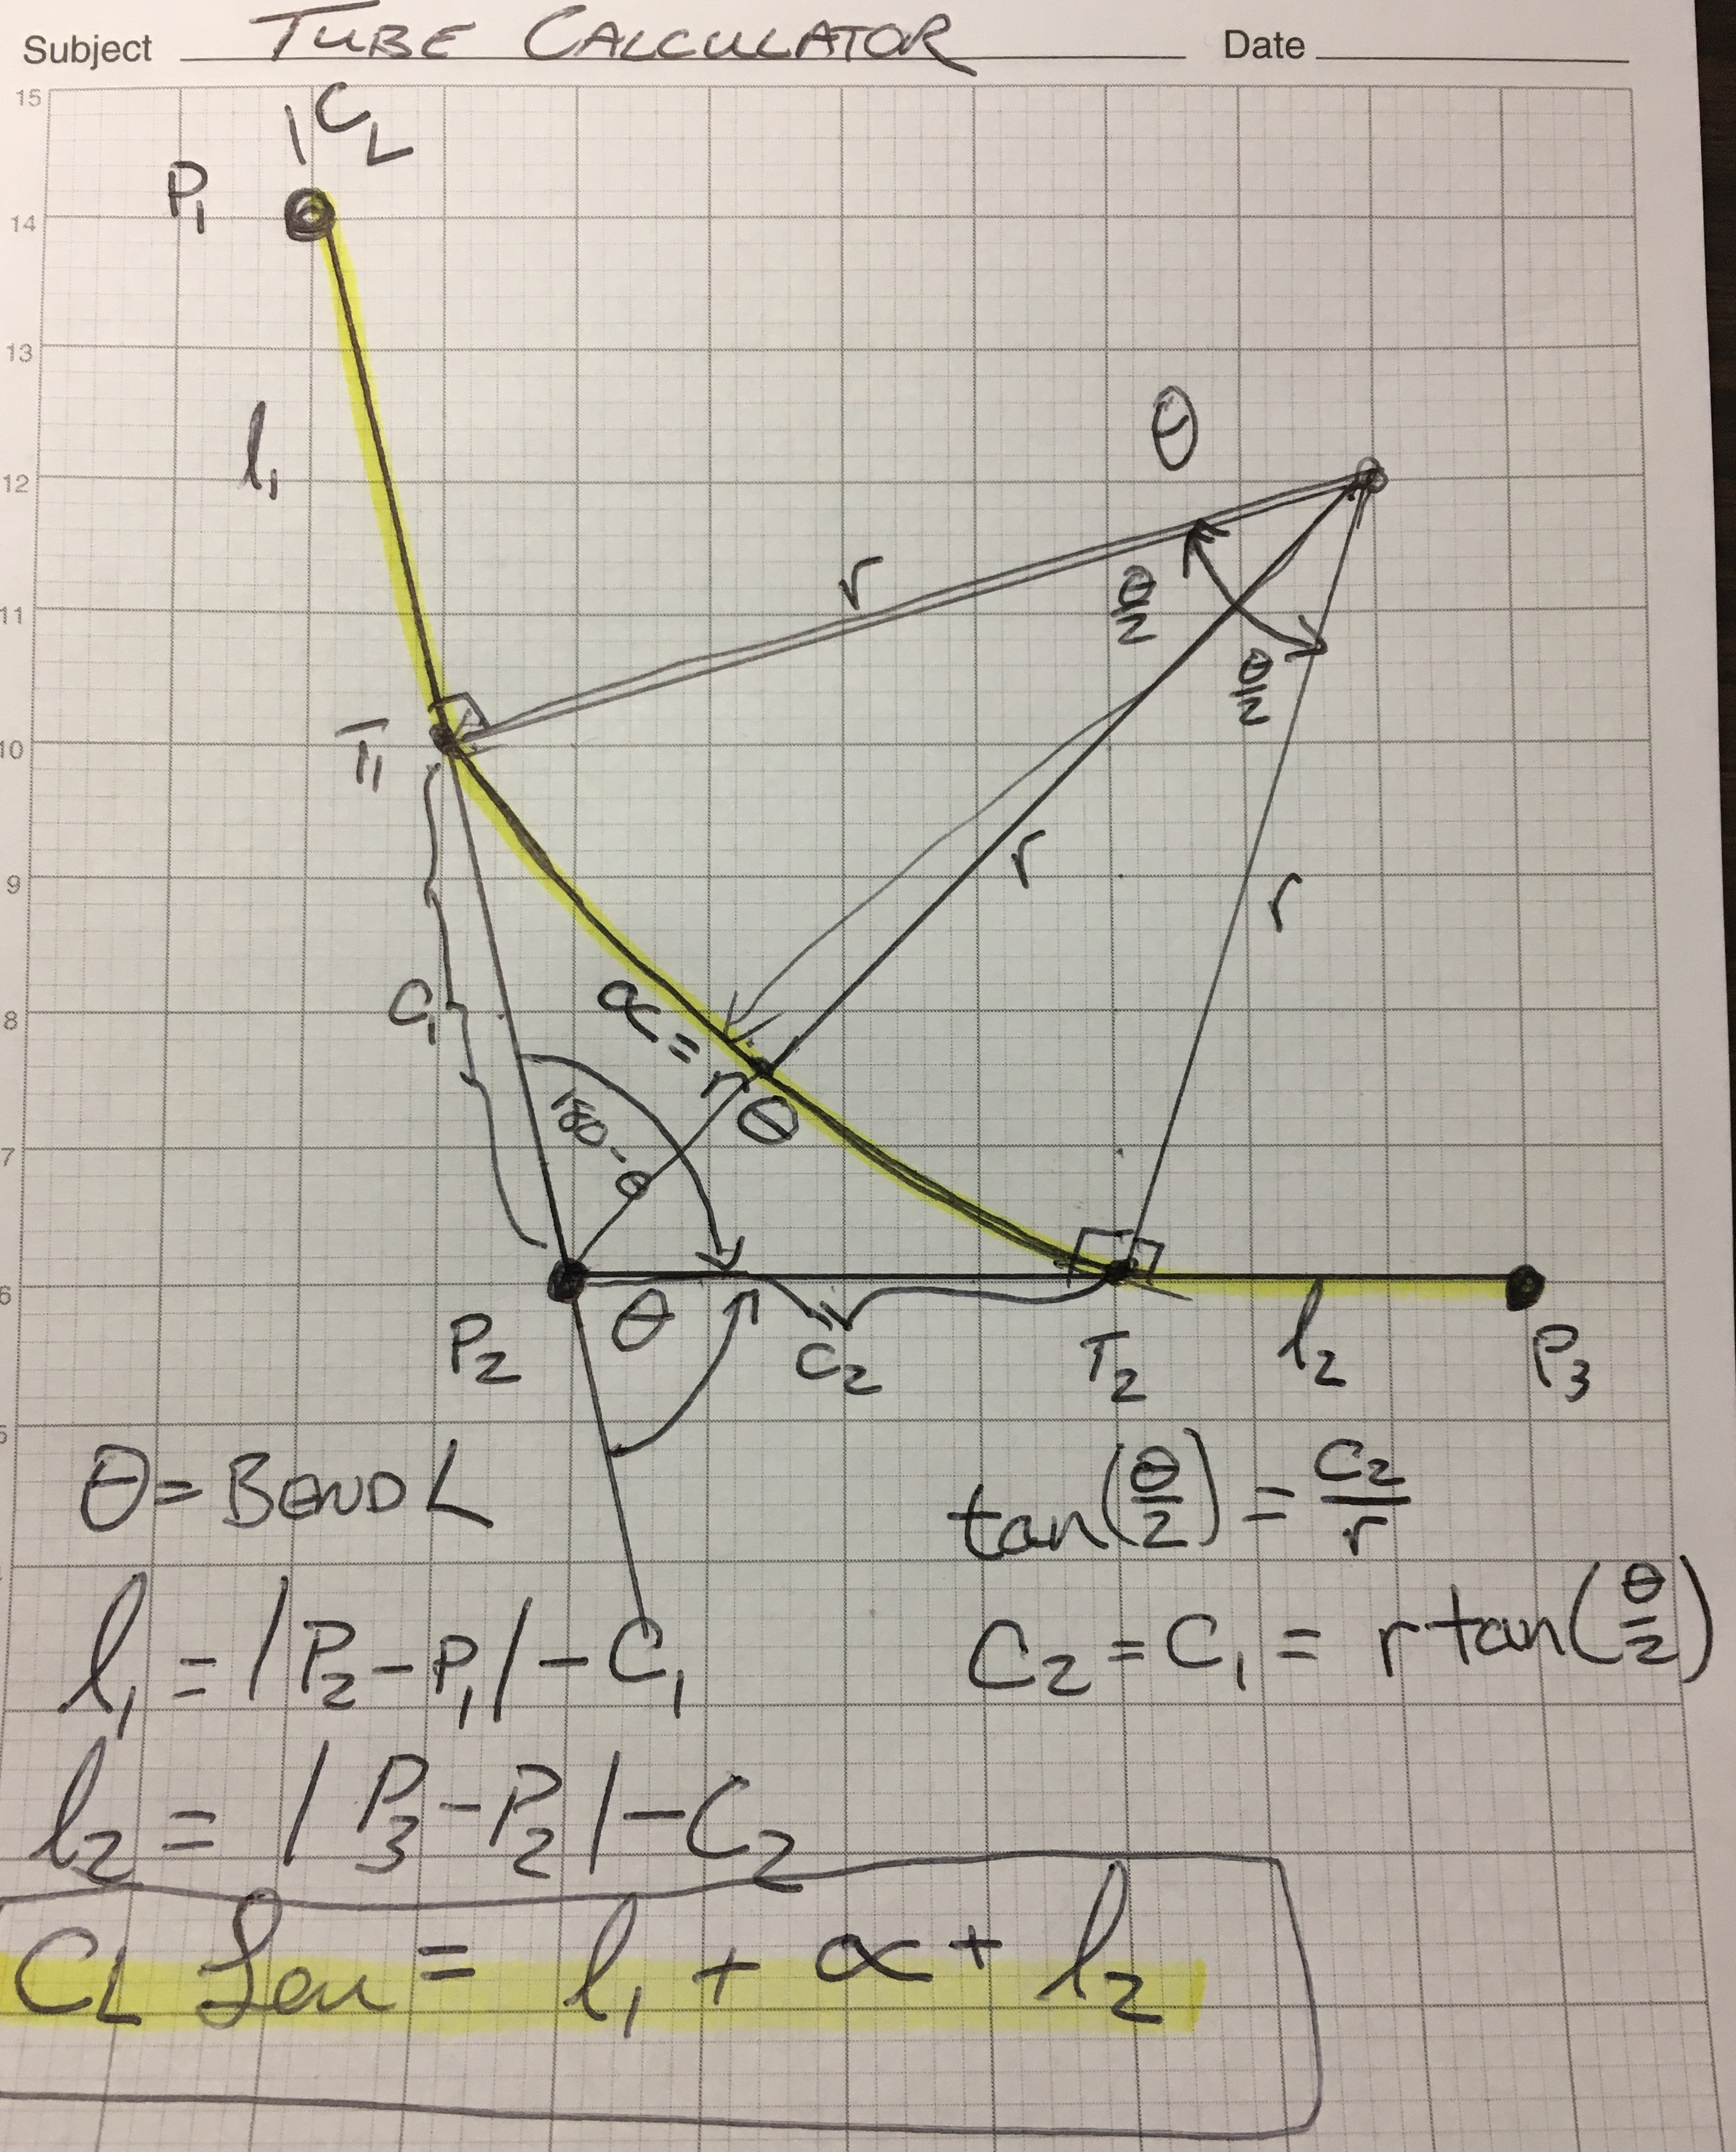 Subject TUBE CALCULATOR Date
15
CL
P1
14
13
l1
θ
12
r
θ/2
11
θ/2
T1
10
r
r
9
C1
α = rθ
8
180-θ
7
6
P2
θ
C2
T2
l2
P3
5
θ = BEND ∠
tan(θ/2) = C2/r
l1 = |P2-P1| - C1
C2 = C1 = r tan(θ/2)
l2 = |P3-P2| - C2
CL Len = l1 + α + l2